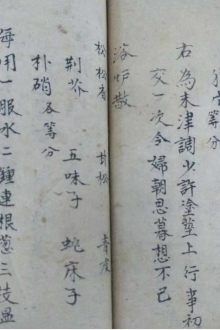 各等分
右為末津調少許塗莖上行事初
交一次令婦朝思暮想不已
浴炉散
松香 甘松 青皮
荆芥 五味子 蛇床子
朴硝各等分
每用一服水二鍾連根葱三枝温